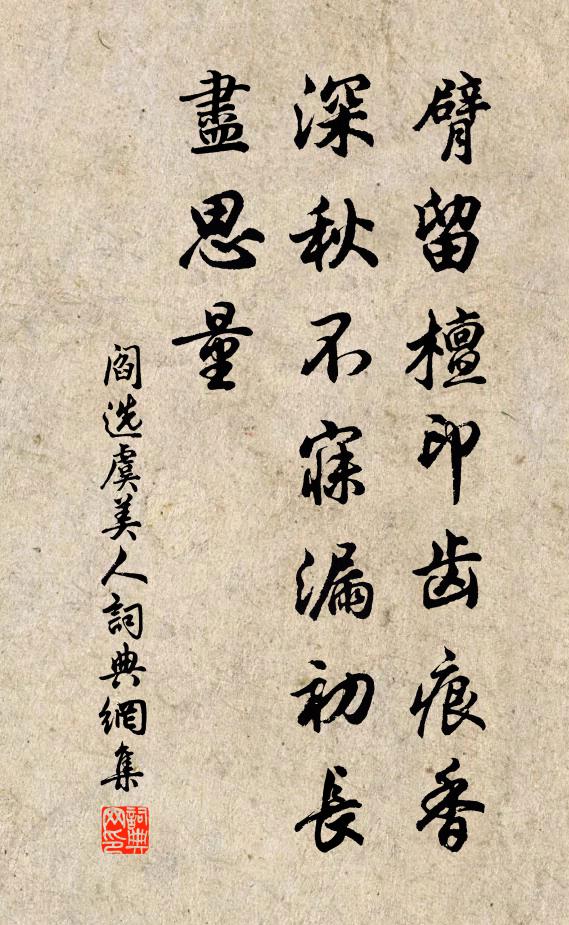 臂留檀印齿痕香
深秋不寐漏初長
盡思量
閻选虞美人詞典網集
詞典网印